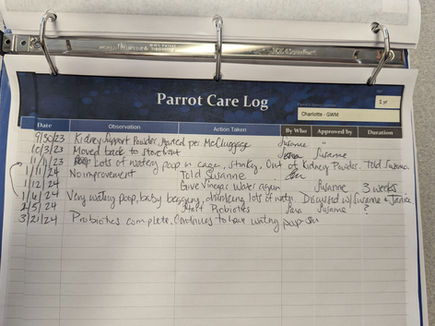 Parrot Care Log
1 of
Charlotte - GWM
Date Observation Action Taken By Who Approved by Duration
Kidney Support Powder started per McCluggage Susanne "
Moved back to storefront Susanne
Lots of watery poop in cage, stinky. Out of Kidney Powder. Told Susanne
No improvement Told Susanne
1/12/24 Give Vinegar Water again Susanne 3 weeks
Very watery poop, baby begging, drinking lots of water. Discussed w/ Susanne & Janice
2/5/24 Start Probiotics Sara Susanne ?
3/21/24 Probiotics complete. Continues to have watery poop